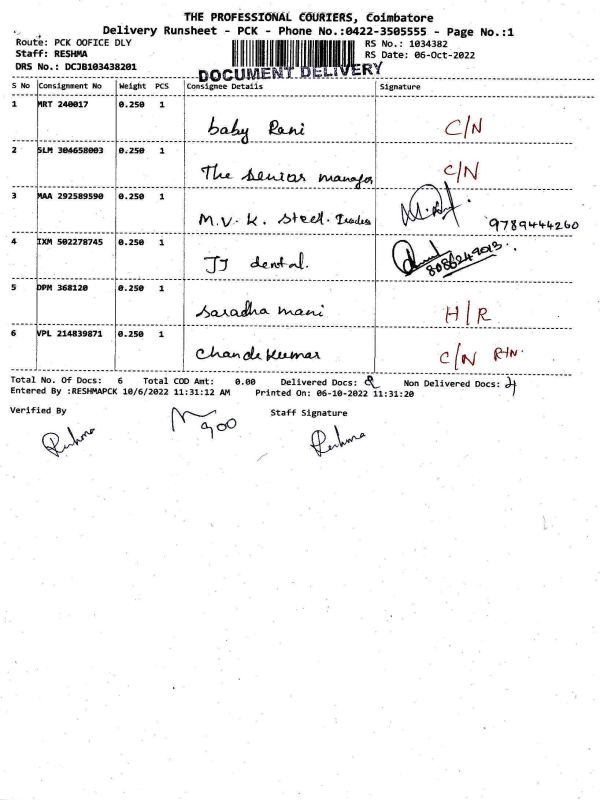 THE PROFESSIONAL COURIERS, Coimbatore
Delivery Runsheet - PCK - Phone No.:0422-3505555 - Page No.:1
Route: PCK OOFICE DLY RS No.: 1034382
Staff: RESHMA RS Date: 06-Oct-2022
DRS No.: DCJB103438201
DOCUMENT DELIVERY
S No Consignment No Weight PCS Consignee Details Signature
1 MRT 240017 0.250 1
baby Rani C/N
2 SLM 304658003 0.250 1
The senior manager C/N
3 MAA 292589590 0.250 1
M.V. K. Steel. Traders 9789444260
4 IXM 502278745 0.250 1
JJ dental.
5 DPM 368120 0.250 1
Saradha mani H/R
6 VPL 214839871 0.250 1
Chandekumar C/N RTN.
Total No. Of Docs: 6 Total COD Amt: 0.00 Delivered Docs: 2 Non Delivered Docs: 4
Entered By :RESHMAPCK 10/6/2022 11:31:12 AM Printed On: 06-10-2022 11:31:20
Verified By Staff Signature
900
Reshma Reshma